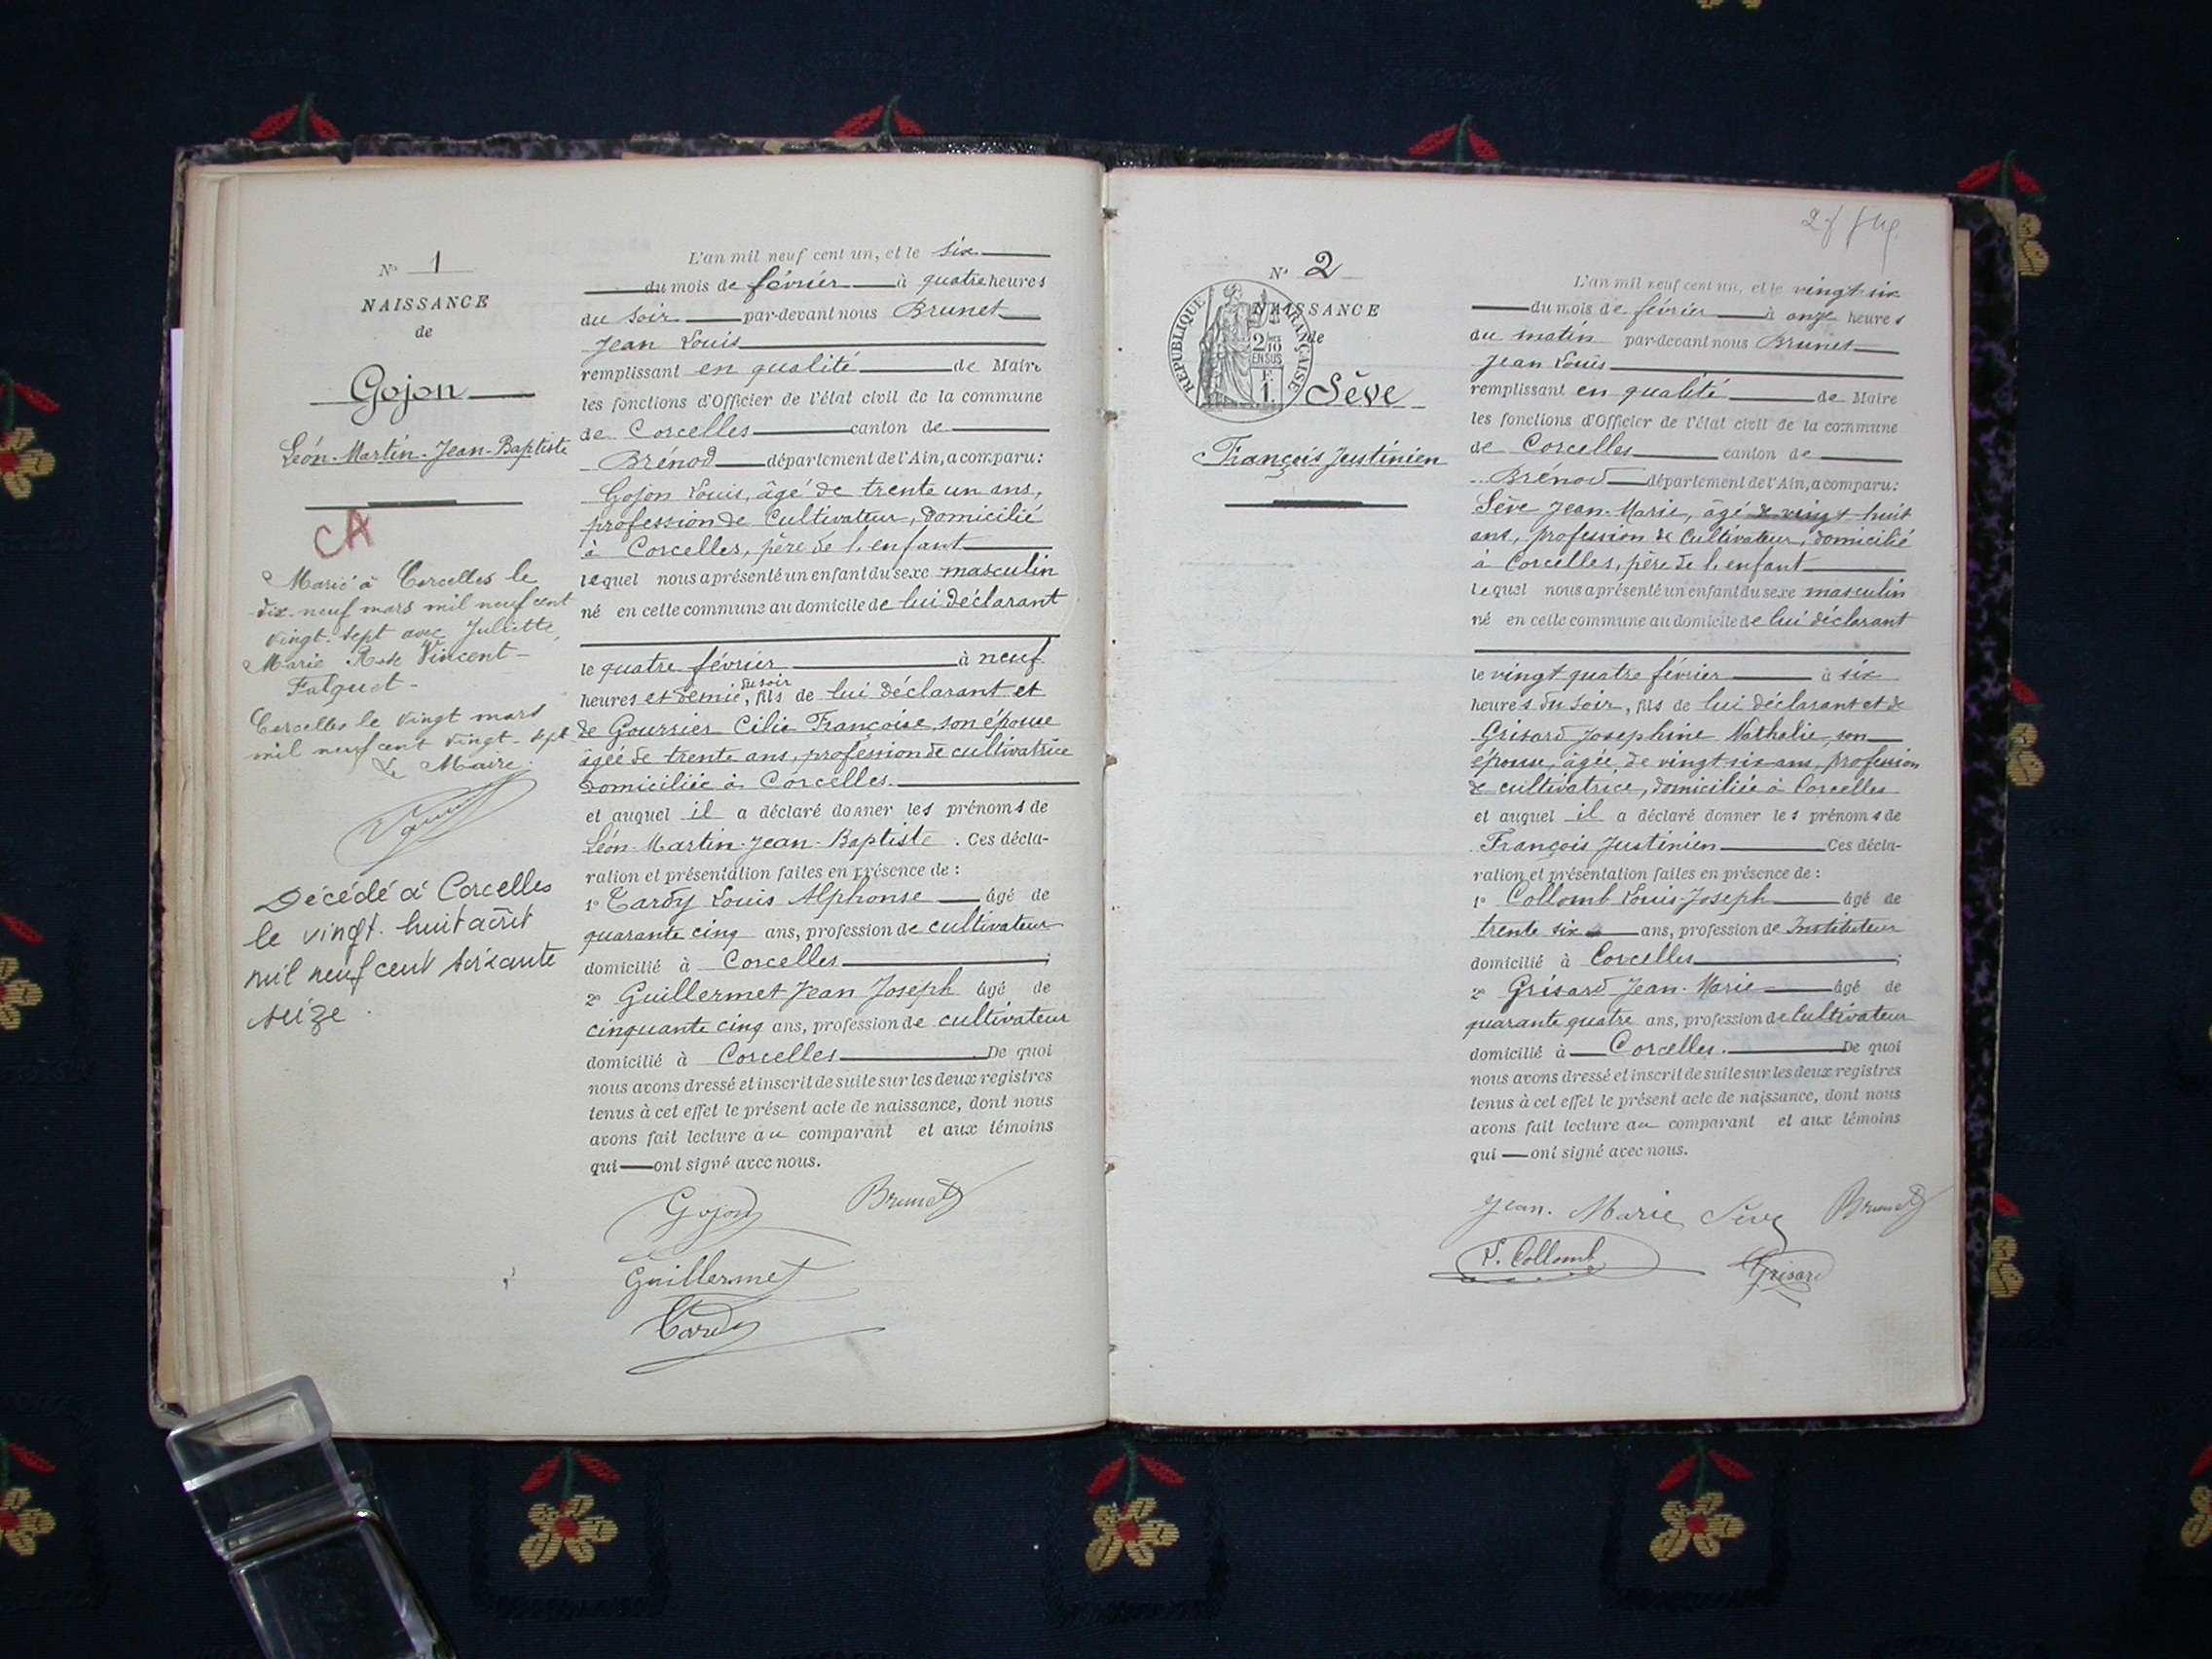 N° 1
NAISSANCE
de
Gojon
Léon-Martin-Jean-Baptiste
CA
Marié à Corcelles le
dix-neuf mars mil neuf cent
vingt-sept avec Juliette
Marie Rose Vincent-
Falquet-
Corcelles le vingt mars
mil neuf cent vingt-sept
Le Maire:
Décédé à Corcelles
le vingt-huit août
mil neuf cent soixante
seize.
L'an mil neuf cent un, et le six
du mois de février à quatre heures
du soir par-devant nous Brunet
Jean Louis
remplissant en qualité de Maire
les fonctions d'Officier de l'état civil de la commune
de Corcelles canton de
Brénod département de l'Ain, a comparu:
Gojon Louis, âgé de trente un ans,
profession de Cultivateur, domicilié
à Corcelles, père de l'enfant
lequel nous a présenté un enfant du sexe masculin
né en cette commune au domicile de lui déclarant
le quatre février à neuf
heures et demie du soir, fils de lui déclarant et
de Goursier Cilie Françoise, son épouse
âgée de trente ans, profession de cultivatrice
domiciliée à Corcelles.
et auquel il a déclaré donner les prénoms de
Léon-Martin-Jean-Baptiste. Ces décla-
ration et présentation faites en présence de:
1° Tardy Louis Alphonse âgé de
quarante cinq ans, profession de cultivateur
domicilié à Corcelles;
2° Guillermet Jean Joseph âgé de
cinquante cinq ans, profession de cultivateur
domicilié à Corcelles De quoi
nous avons dressé et inscrit de suite sur les deux registres
tenus à cet effet le présent acte de naissance, dont nous
avons fait lecture au comparant et aux témoins
qui ont signé avec nous.
Gojon Brunet
Guillermet
Tardy
N° 2
NAISSANCE
de
RÉPUBLIQUE FRANÇAISE
2/10 EN SUS
F. 1.
Sève
François Justinien
L'an mil neuf cent un, et le vingt-six
du mois de février à onze heures
du matin par-devant nous Brunet
Jean Louis
remplissant en qualité de Maire
les fonctions d'Officier de l'état civil de la commune
de Corcelles canton de
Brénod département de l'Ain, a comparu:
Sève Jean-Marie, âgé de vingt huit
ans, profession de Cultivateur, domicilié
à Corcelles, père de l'enfant
lequel nous a présenté un enfant du sexe masculin
né en cette commune au domicile de lui déclarant
le vingt quatre février à six
heures du soir, fils de lui déclarant et de
Grisard Josephine Nathalie, son
épouse, âgée de vingt-six ans, profession
de cultivatrice, domiciliée à Corcelles
et auquel il a déclaré donner les prénoms de
François Justinien Ces décla-
ration et présentation faites en présence de:
1° Collomb Louis-Joseph âgé de
trente six ans, profession de Instituteur
domicilié à Corcelles;
2° Grisard Jean-Marie âgé de
quarante quatre ans, profession de Cultivateur
domicilié à Corcelles. De quoi
nous avons dressé et inscrit de suite sur les deux registres
tenus à cet effet le présent acte de naissance, dont nous
avons fait lecture au comparant et aux témoins
qui ont signé avec nous.
Jean. Marie Sève Brunet
L. Collomb Grisard